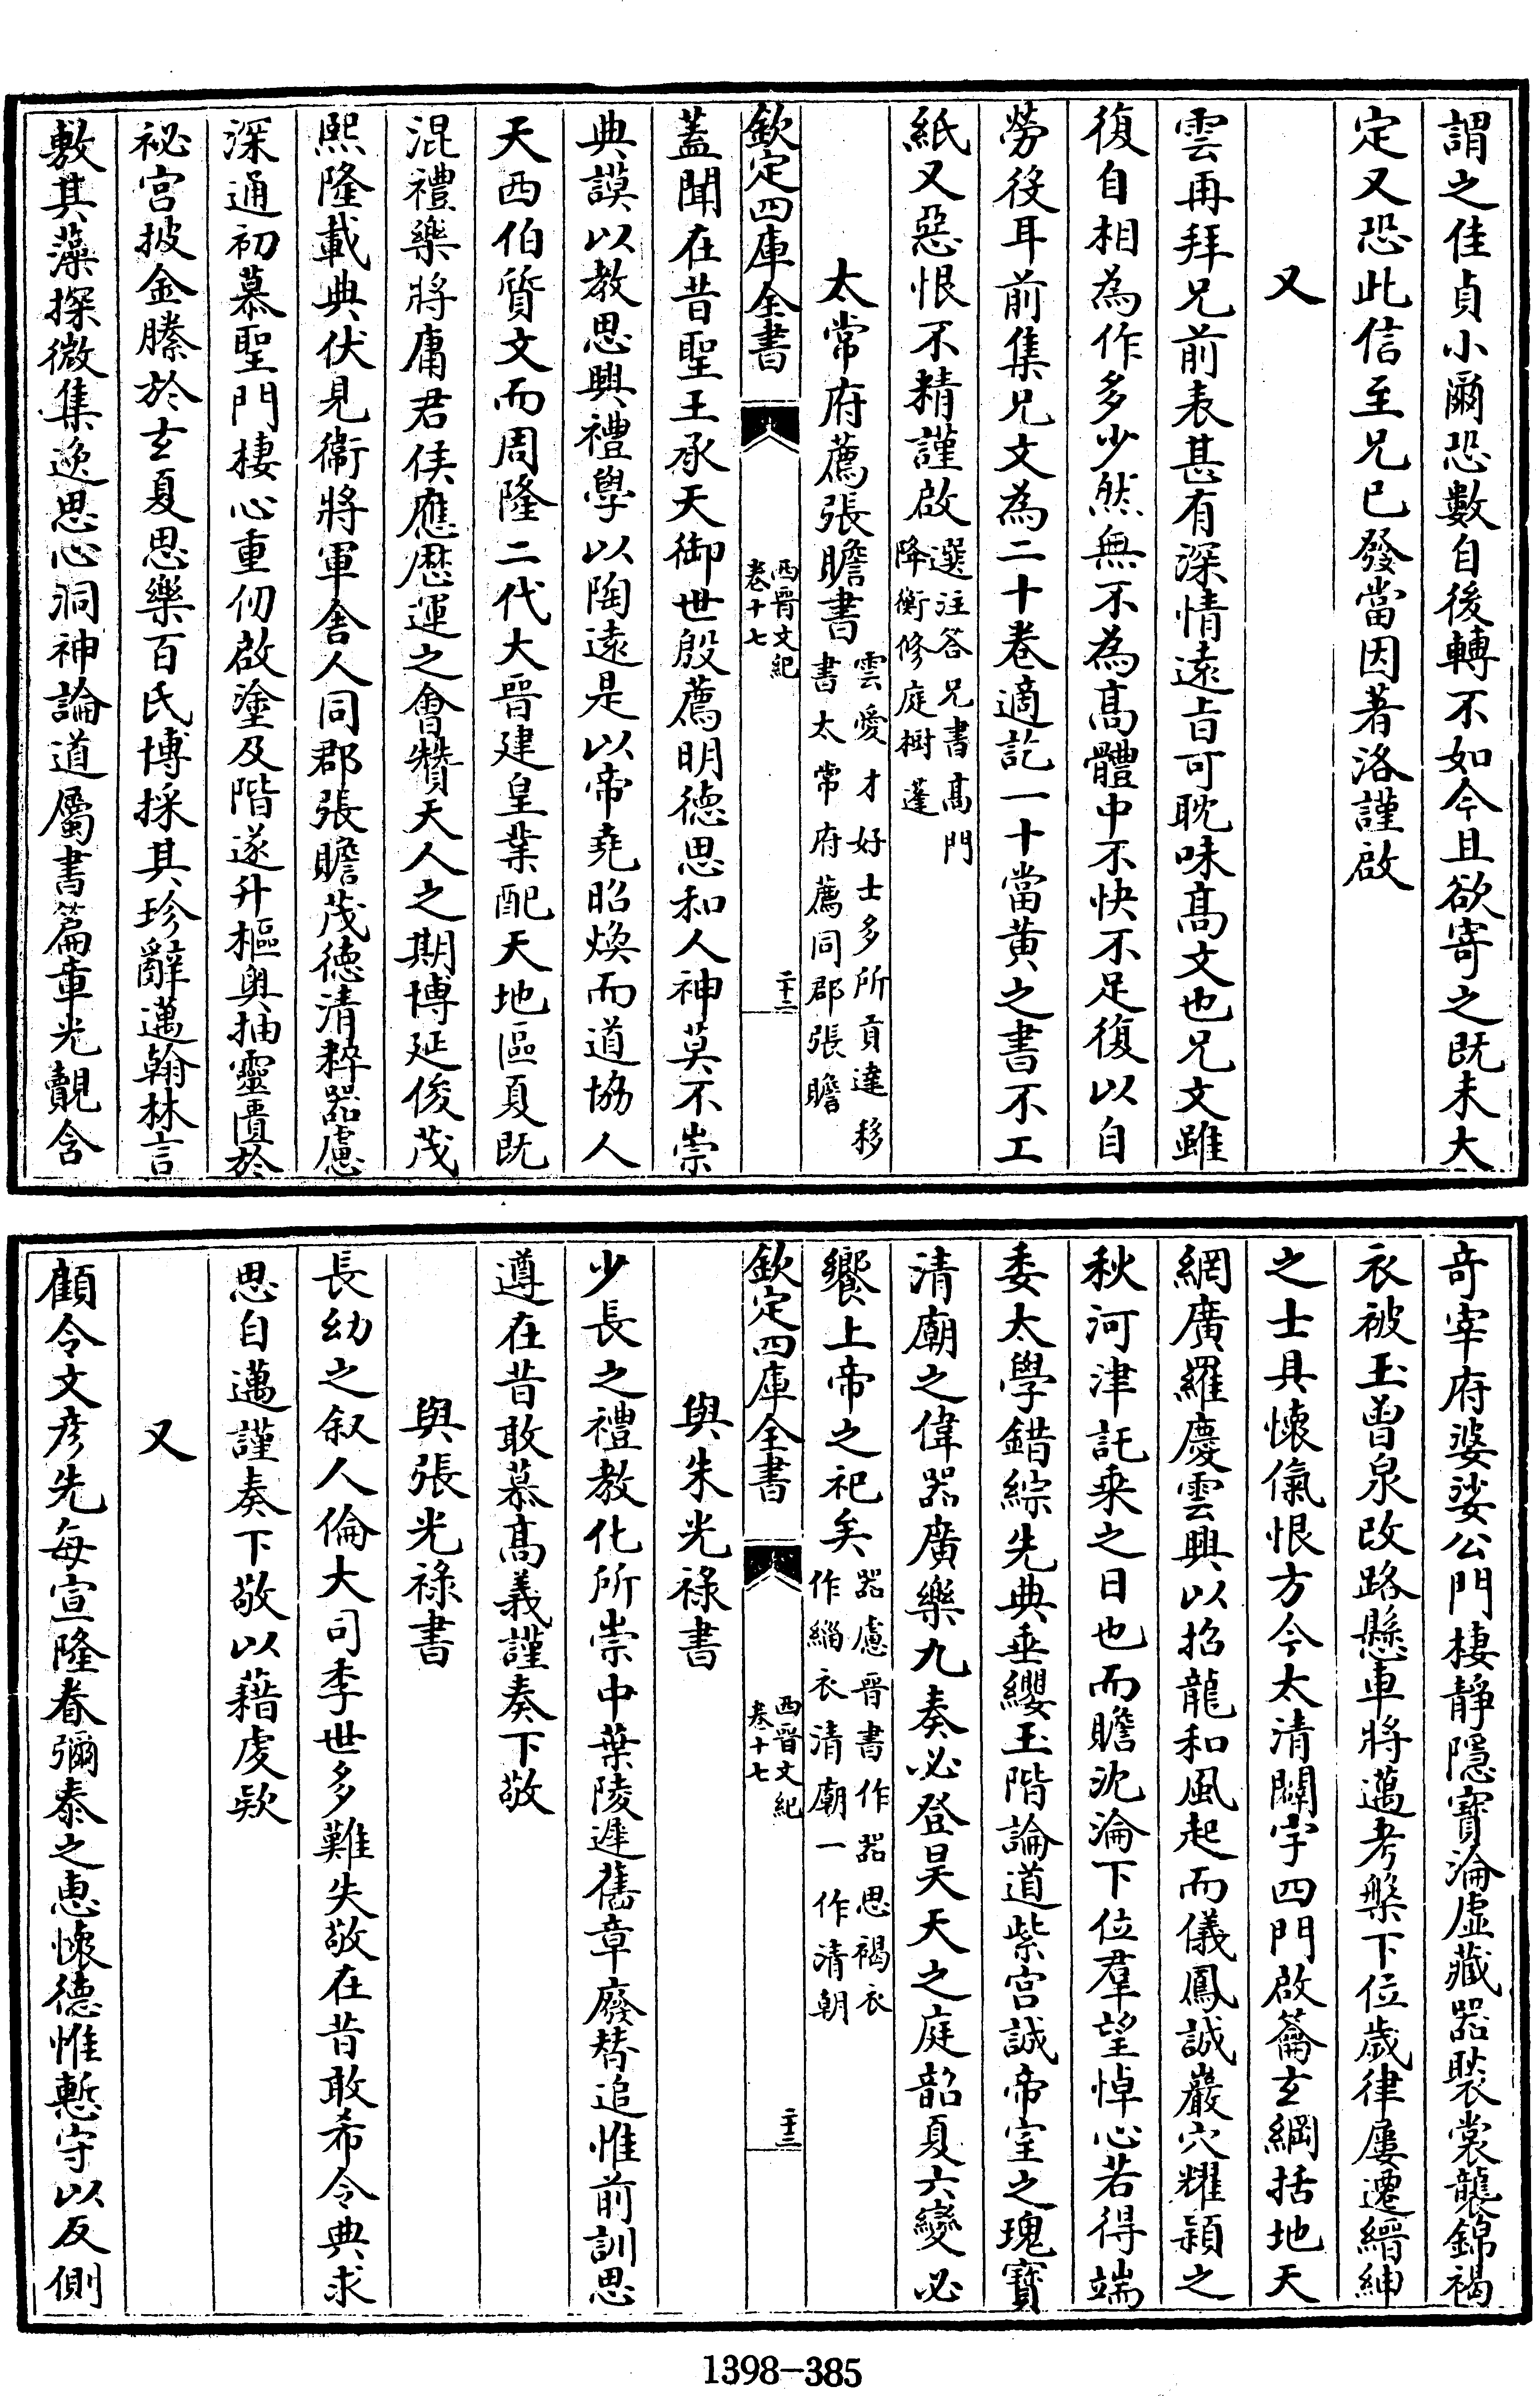 謂之佳貞小爾恐數自後轉不如今且欲寄之既未大
定又恐此信至兄已發當因著洛謹啟
又
雲再拜兄前表甚有深情遠旨可耽味高文也兄文雖
復自相為作多少然無不為高體中不快不足復以自
勞役耳前集兄文為二十卷適訖一十當黄之書不工
紙又惡恨不精謹啟選注答兄書高門
降衡修庭樹蓬
太常府薦張瞻書雲愛才好士多所貢達移
書太常府薦同郡張瞻
欽定四庫全書
西晉文紀
卷十七
二十二
蓋聞在昔聖王承天御世殷薦明德思和人神莫不崇
典謨以教思興禮學以陶遠是以帝堯昭煥而道協人
天西伯質文而周隆二代大晉建皇業配天地區夏既
混禮樂將庸君侯應歷運之會贊天人之期博延俊茂
熙隆載典伏見衞將軍舍人同郡張瞻茂德清粹器慮
深通初慕聖門棲心重仞啟塗及階遂升樞奥抽靈匱於
祕宫披金縢於玄夏思樂百氏博採其珍辭邁翰林言
敷其藻探微集逸思心洞神論道屬書篇章光覿含
奇宰府婆娑公門棲靜隱寶淪虚藏器褧裳襲錦褐
衣被玉曽泉改路懸車將邁考槃下位歲律屢遷縉紳
之士具懷愾恨方今太清闢宇四門啟籥玄綱括地天
網廣羅慶雲興以招龍和風起而儀鳳誠巖穴耀穎之
秋河津託乗之日也而瞻沈淪下位羣望悼心若得端
委太學錯綜先典垂纓玉階論道紫宫誠帝室之瑰寶
清廟之偉器廣樂九奏必登昊天之庭韶夏六變必
饗上帝之祀矣器慮晉書作器思褐衣
作緇衣清廟一作清朝
欽定四庫全書
西晉文紀
卷十七
二十三
與朱光禄書
少長之禮教化所崇中葉陵遲舊章廢替追惟前訓思
遵在昔敢慕高義謹奏下敬
與張光禄書
長幼之叙人倫大司季世多難失敬在昔敢希令典求
思自邁謹奏下敬以藉虔欵
又
顧令文彦先每宣隆眷彌泰之恵懷德惟慙守以反側
1398-385